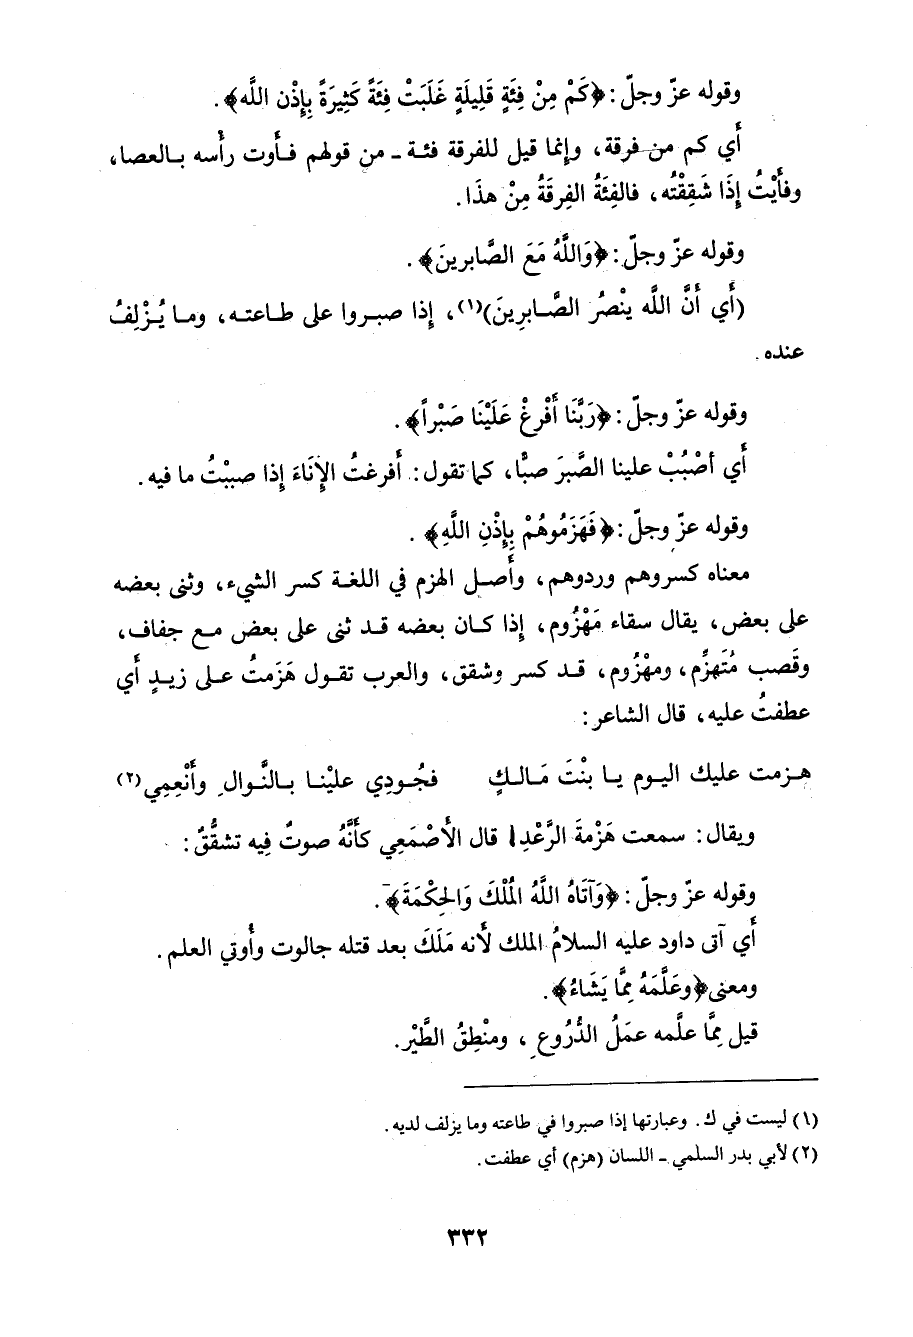 وقوله عزّ وجلّ : ﴿كَمْ مِنْ فِئَةٍ قَلِيلَةٍ غَلَبَتْ فِئَةً كَثِيرَةً بِإِذْنِ اللَّه﴾ .
أَي كم من فرقة، وإِنما قيل للفرقة فئة - من قولهم فأوت رأْسه بالعصا،
وفأَيْتُ إِذَا شَقِقْتُه، فالفِئَةُ الفِرقَةُ مِنْ هذَا.
وقوله عزّ وجلّ : ﴿وَاللَّهُ مَعَ الصَّابرينَ﴾ .
(أَي أَنَّ اللَّه ينْصُر الصَّابِرِينَ)(١)، إِذا صبروا على طاعته، وما يُزْلِفُ
عنده .
وقوله عزّ وجلّ : ﴿رَبَّنَا أَفْرِغْ عَلَيْنَا صَبْراً﴾ .
أَي أصْبُبْ علينا الصَّبرَ صبًّا، كما تقول : أَفرغتُ الإِنَاءَ إِذا صببْتُ ما فيه .
وقوله عزّ وجلّ : ﴿فَهَزَمُوهُمْ بِإِذْنِ اللَّهِ﴾ .
معناه كسروهم وردوهم، وأَصل الهزم في اللغة كسر الشيء، وثنى بعضه
على بعض، يقال سقاء مَهْزُوم، إِذا كان بعضه قد ثنى على بعض مع جفاف،
وقَصب مُتَهزِّم، ومهْزُوم، قد كسر وشقق، والعرب تقول هَزَمتُ على زيدٍ أَي
عطفتُ عليه، قال الشاعر :
هزمت عليك اليوم يا بنْتَ مَالكٍ فجُودِي عليْنا بالنَّوال وأَنْعِمِي(٢)
ويقال : سمعت هَزْمةَ الرَّعْدِ قال الأَصْمَعِي كأَنَّهُ صوتٌ فِيه تشقُّقٌ :
وقوله عزّ وجلّ : ﴿وَآتَاهُ اللَّهُ المُلْكَ وَالحِكْمَةَ﴾ .
أَي آتى داود عليه السلامُ الملك لأنه مَلَكَ بعد قتله جالوت وأُوتي العلم .
ومعنى ﴿وعَلَّمَهُ مِمَّا يَشَاءُ﴾ .
قيل مِمَّا علَّمه عمَلُ الدُّرُوع ، ومنْطِقُ الطَّيْر.
(١) ليست في ك . وعبارتها إذا صبروا في طاعته وما يزلف لديه .
(٢) لأبي بدر السلمي - اللسان (هزم) أي عطفت .
٣٣٢